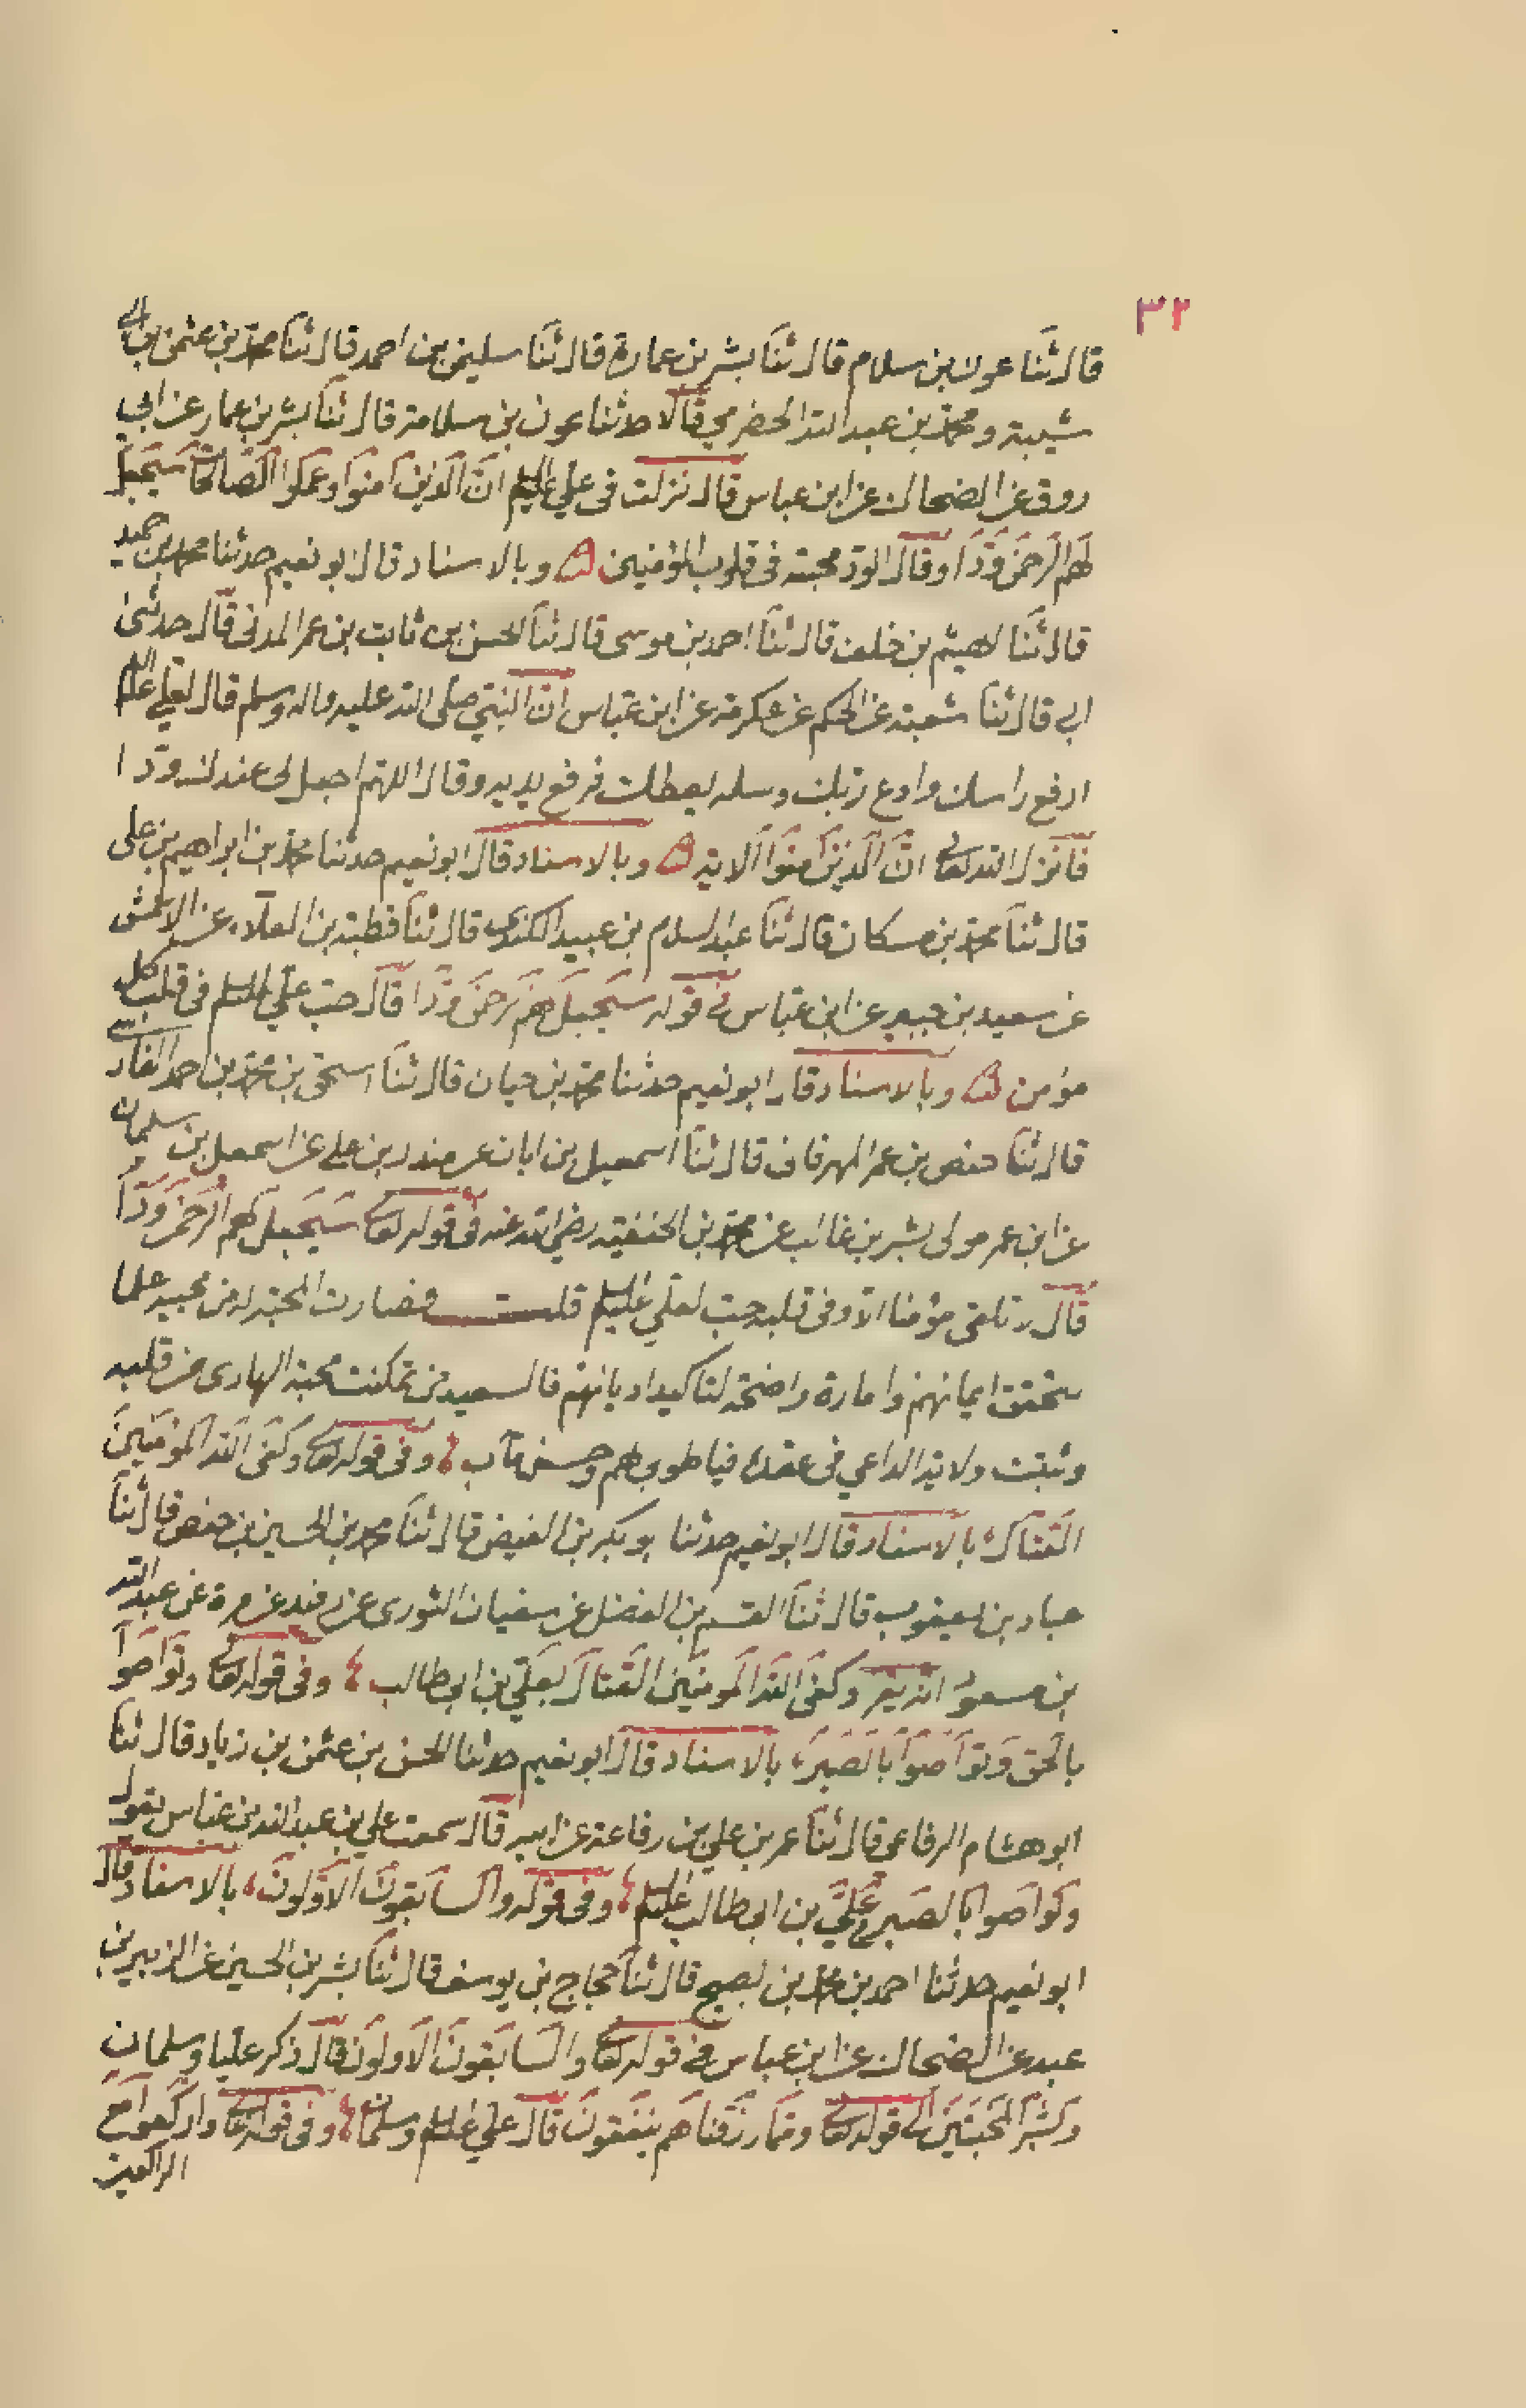 ٣٢
قال ثنا عون بن سلام قال ثنا بشر بن عمارة قال ثنا سليمن بن احمد قال ثنا محمد بن عثمن بن ابي
شيبة ومحمد بن عبد الله الحضرمي قالا حدثنا عون بن سلامة قال ثنا بشر بن عمار عن ابي
روق عن الضحاك عن ابن عباس قال نزلت في علي عليه السلم ان الذين امنوا وعملوا الصالحات سيجعل
لهم الرحمن ودا وقال الود محبة في قلوب المؤمنين ۵ وبالاسناد قال ابو نعيم حدثنا محمد بن حميد
قال ثنا الهيثم بن خلف قال ثنا احمد بن موسى قال ثنا الحسن بن ثابت بن عمر المدني قال حدثني
ابي قال ثنا شعبة عن الحكم عن عكرمة عن ابن عباس ان النبي صلى الله عليه واله وسلم قال لعلي عليه السلم
ارفع راسك وادع ربك وسله يعطك فرفع يديه وقال اللهم اجعل لي عندك ودا
فانزل الله تعالى ان الذين امنوا الاية ۵ وبالاسناد قال ابو نعيم حدثنا محمد بن ابراهيم بن علي
قال ثنا محمد بن مسكان قال ثنا عبد السلام بن عبيد الكندي قال ثنا قطبة بن العلاء عن الاعمش
عن سعيد بن جبير عن ابن عباس في قوله سيجعل لهم الرحمن ودا قال حب علي عليه السلم في قلب كل
مؤمن ۵ وبالاسناد قال ابو نعيم حدثنا محمد بن حيان قال ثنا اسحق بن محمد بن احمد الفارسي
قال ثنا حفص بن عمر المهرقاني قال ثنا اسمعيل بن ابان عن مندر بن علي عن اسمعيل بن سلمان
عن ابن عمر مولى بشر بن غالب عن محمد بن الحنفية رضي الله عنه في قوله تعالى سيجعل لهم الرحمن ودا
قال لا تلقى مؤمنا الا وفي قلبه حب لعلي عليه السلم قلت فصارت المحبة له من محبيه علما
بتحقق ايمانهم وامارة واضحة لتاكيد اديانهم فالسعيد من تمكنت محبة الهادي من قلبه
وثبتت ولاية الداعي في عقده فيا طوبى لهم وحسن مآب وفي قوله تعالى وكفى الله المومنين
القتال بالاسناد قال ابو نعيم حدثنا بو بكر بن الفيض قال ثنا محمد بن الحسين بن حفص قال ثنا
عباد بن يعقوب قال ثنا القسم بن الفضل عن سفيان الثوري عن زفند عن مرة عن عبد الله
بن مسعود انه يقر وكفى الله المومنين القتال بعلي بن ابي طالب وفي قوله تعالى وتواصوا
بالحق وتواصوا بالصبر بالاسناد قال ابو نعيم حدثنا الحسن بن عثمن بن زياد قال ثنا
ابو هشام الرفاعي قال ثنا عمر بن علي بن رفاعة عن ابيه قال سمعت علي بن عبد الله بن عباس يقول
وتواصوا بالصبر علي بن ابي طالب عليه السلم وفي قوله والسابقون الاولون بالاسناد قال
ابو نعيم حدثنا احمد بن محمد بن نصيح قال ثنا حجاج بن يوسف قال ثنا بشر بن الحسين عن الزبير بن
عبد عن الضحاك عن ابن عباس في قوله تعالى والسابقون الاولون قال ذكر عليا وسلمان
وبشر المخبتين الى قوله تعالى ومما رزقناهم ينفقون قال علي عليه السلم وسلمان وفي قوله تعالى واركعوا مع
الراكعين